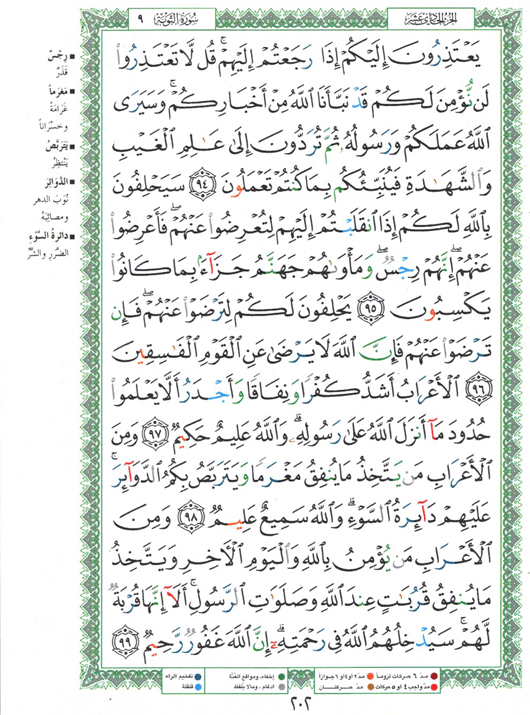 الجزء الحادي عشر
سورة التوبة
٩
يَعْتَذِرُونَ إِلَيْكُمْ إِذَا رَجَعْتُمْ إِلَيْهِمْ ۚ قُل لَّا تَعْتَذِرُوا۟
لَن نُّؤْمِنَ لَكُمْ قَدْ نَبَّأَنَا ٱللَّهُ مِنْ أَخْبَارِكُمْ ۚ وَسَيَرَى
ٱللَّهُ عَمَلَكُمْ وَرَسُولُهُۥ ثُمَّ تُرَدُّونَ إِلَىٰ عَـٰلِمِ ٱلْغَيْبِ
وَٱلشَّهَـٰدَةِ فَيُنَبِّئُكُم بِمَا كُنتُمْ تَعْمَلُونَ ٩٤ سَيَحْلِفُونَ
بِٱللَّهِ لَكُمْ إِذَا ٱنقَلَبْتُمْ إِلَيْهِمْ لِتُعْرِضُوا۟ عَنْهُمْ ۖ فَأَعْرِضُوا۟
عَنْهُمْ ۖ إِنَّهُمْ رِجْسٌ ۖ وَمَأْوَىٰهُمْ جَهَنَّمُ جَزَآءًۢ بِمَا كَانُوا۟
يَكْسِبُونَ ٩٥ يَحْلِفُونَ لَكُمْ لِتَرْضَوْا۟ عَنْهُمْ ۖ فَإِن
تَرْضَوْا۟ عَنْهُمْ فَإِنَّ ٱللَّهَ لَا يَرْضَىٰ عَنِ ٱلْقَوْمِ ٱلْفَـٰسِقِينَ
٩٦ ٱلْأَعْرَابُ أَشَدُّ كُفْرًا وَنِفَاقًا وَأَجْدَرُ أَلَّا يَعْلَمُوا۟
حُدُودَ مَآ أَنزَلَ ٱللَّهُ عَلَىٰ رَسُولِهِۦ ۗ وَٱللَّهُ عَلِيمٌ حَكِيمٌ ٩٧ وَمِنَ
ٱلْأَعْرَابِ مَن يَتَّخِذُ مَا يُنفِقُ مَغْرَمًا وَيَتَرَبَّصُ بِكُمُ ٱلدَّوَآئِرَ ۚ
عَلَيْهِمْ دَآئِرَةُ ٱلسَّوْءِ ۗ وَٱللَّهُ سَمِيعٌ عَلِيمٌ ٩٨ وَمِنَ
ٱلْأَعْرَابِ مَن يُؤْمِنُ بِٱللَّهِ وَٱلْيَوْمِ ٱلْـَٔاخِرِ وَيَتَّخِذُ
مَا يُنفِقُ قُرُبَـٰتٍ عِندَ ٱللَّهِ وَصَلَوَٰتِ ٱلرَّسُولِ ۚ أَلَآ إِنَّهَا قُرْبَةٌ
لَّهُمْ ۚ سَيُدْخِلُهُمُ ٱللَّهُ فِى رَحْمَتِهِۦٓ ۗ إِنَّ ٱللَّهَ غَفُورٌ رَّحِيمٌ ٩٩
رِجْسٌ
قَذَرٌ
مَغْرَماً
غَرَامَةً
وخُسْرَاناً
يَتَرَبَّصُ
يَنْتَظِرُ
الدَّوَائِرَ
نُوَبَ الدهر
ومصائِبَهُ
دَائِرَةُ السَّوْءِ
الضَّرَرِ والشَّرِّ
مدّ ٦ حركات لزوماً
مدّ ٢ أو ٤ أو ٦ جوازاً
إخفاء، ومواقع الغنّة
تفخيم الراء
مدّ واجب ٤ أو ٥ حركات
مدّ حركتـان
ادغام، وما لا يُلفظ
قلقلة
٢٠٢